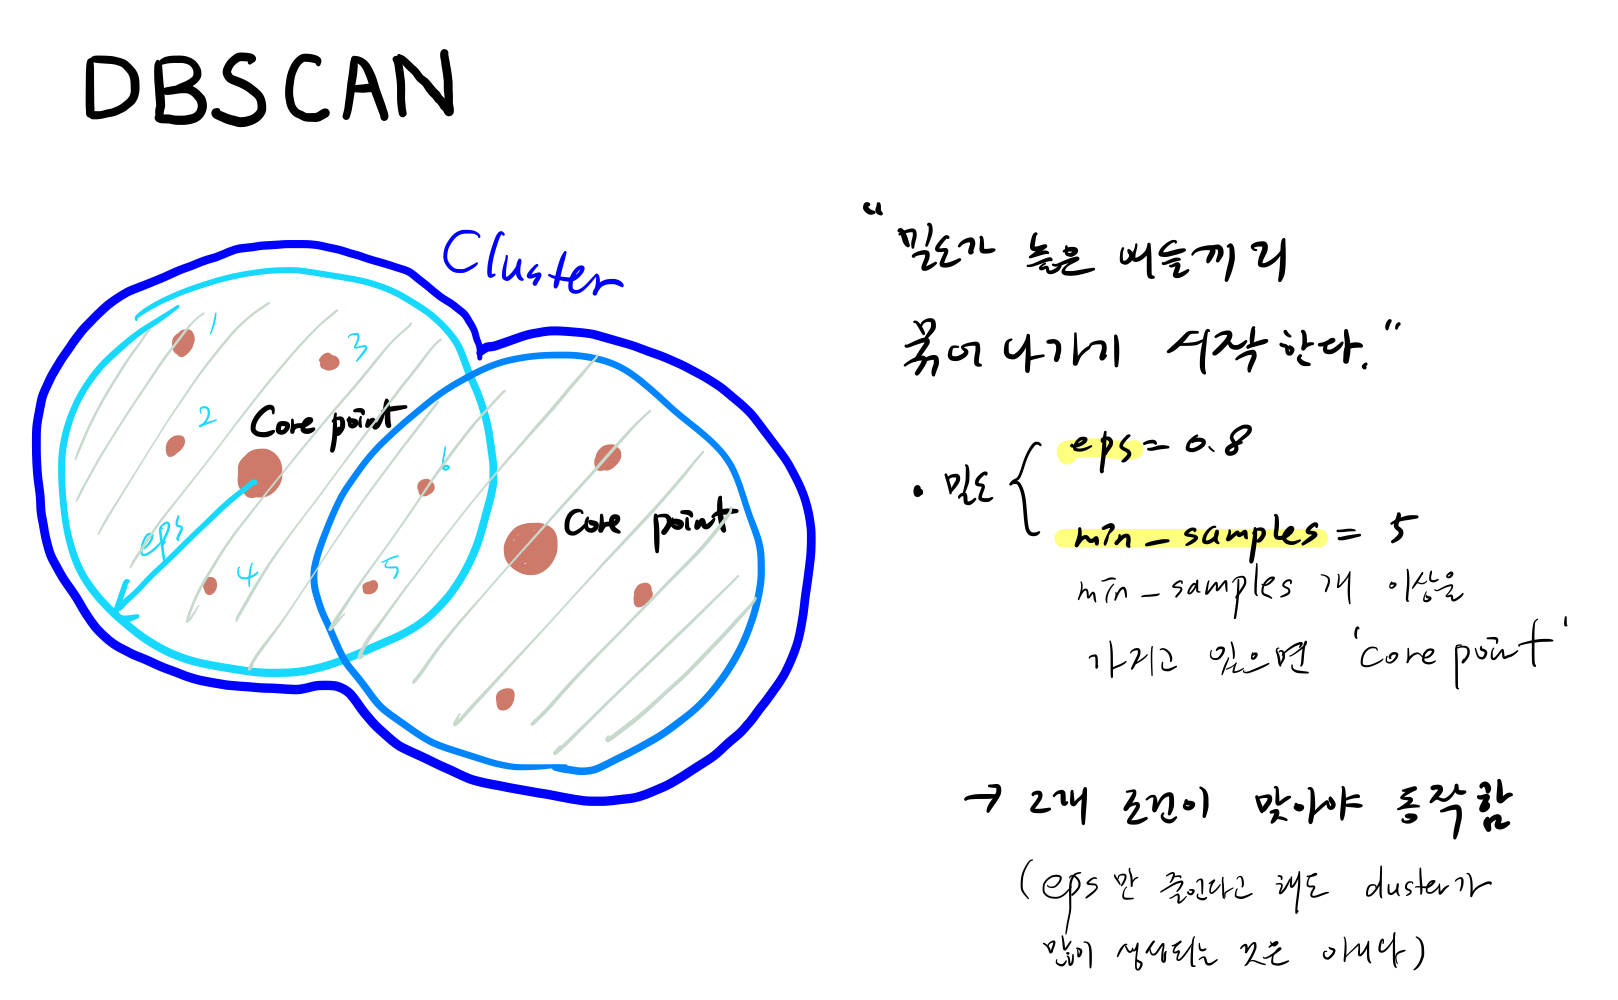 DBSCAN
Cluster
1
3
2
Core point
6
eps
4
5
Core point
“밀도가 높은 애들끼리
묶어 나가기 시작한다.”
• 밀도
eps = 0.8
min_samples = 5
min_samples 개 이상을
가지고 있으면 ‘core point’
→ 2개 조건이 맞아야 동작함
(eps만 줄인다고 해도 cluster가
많이 생성되는 것은 아니다)